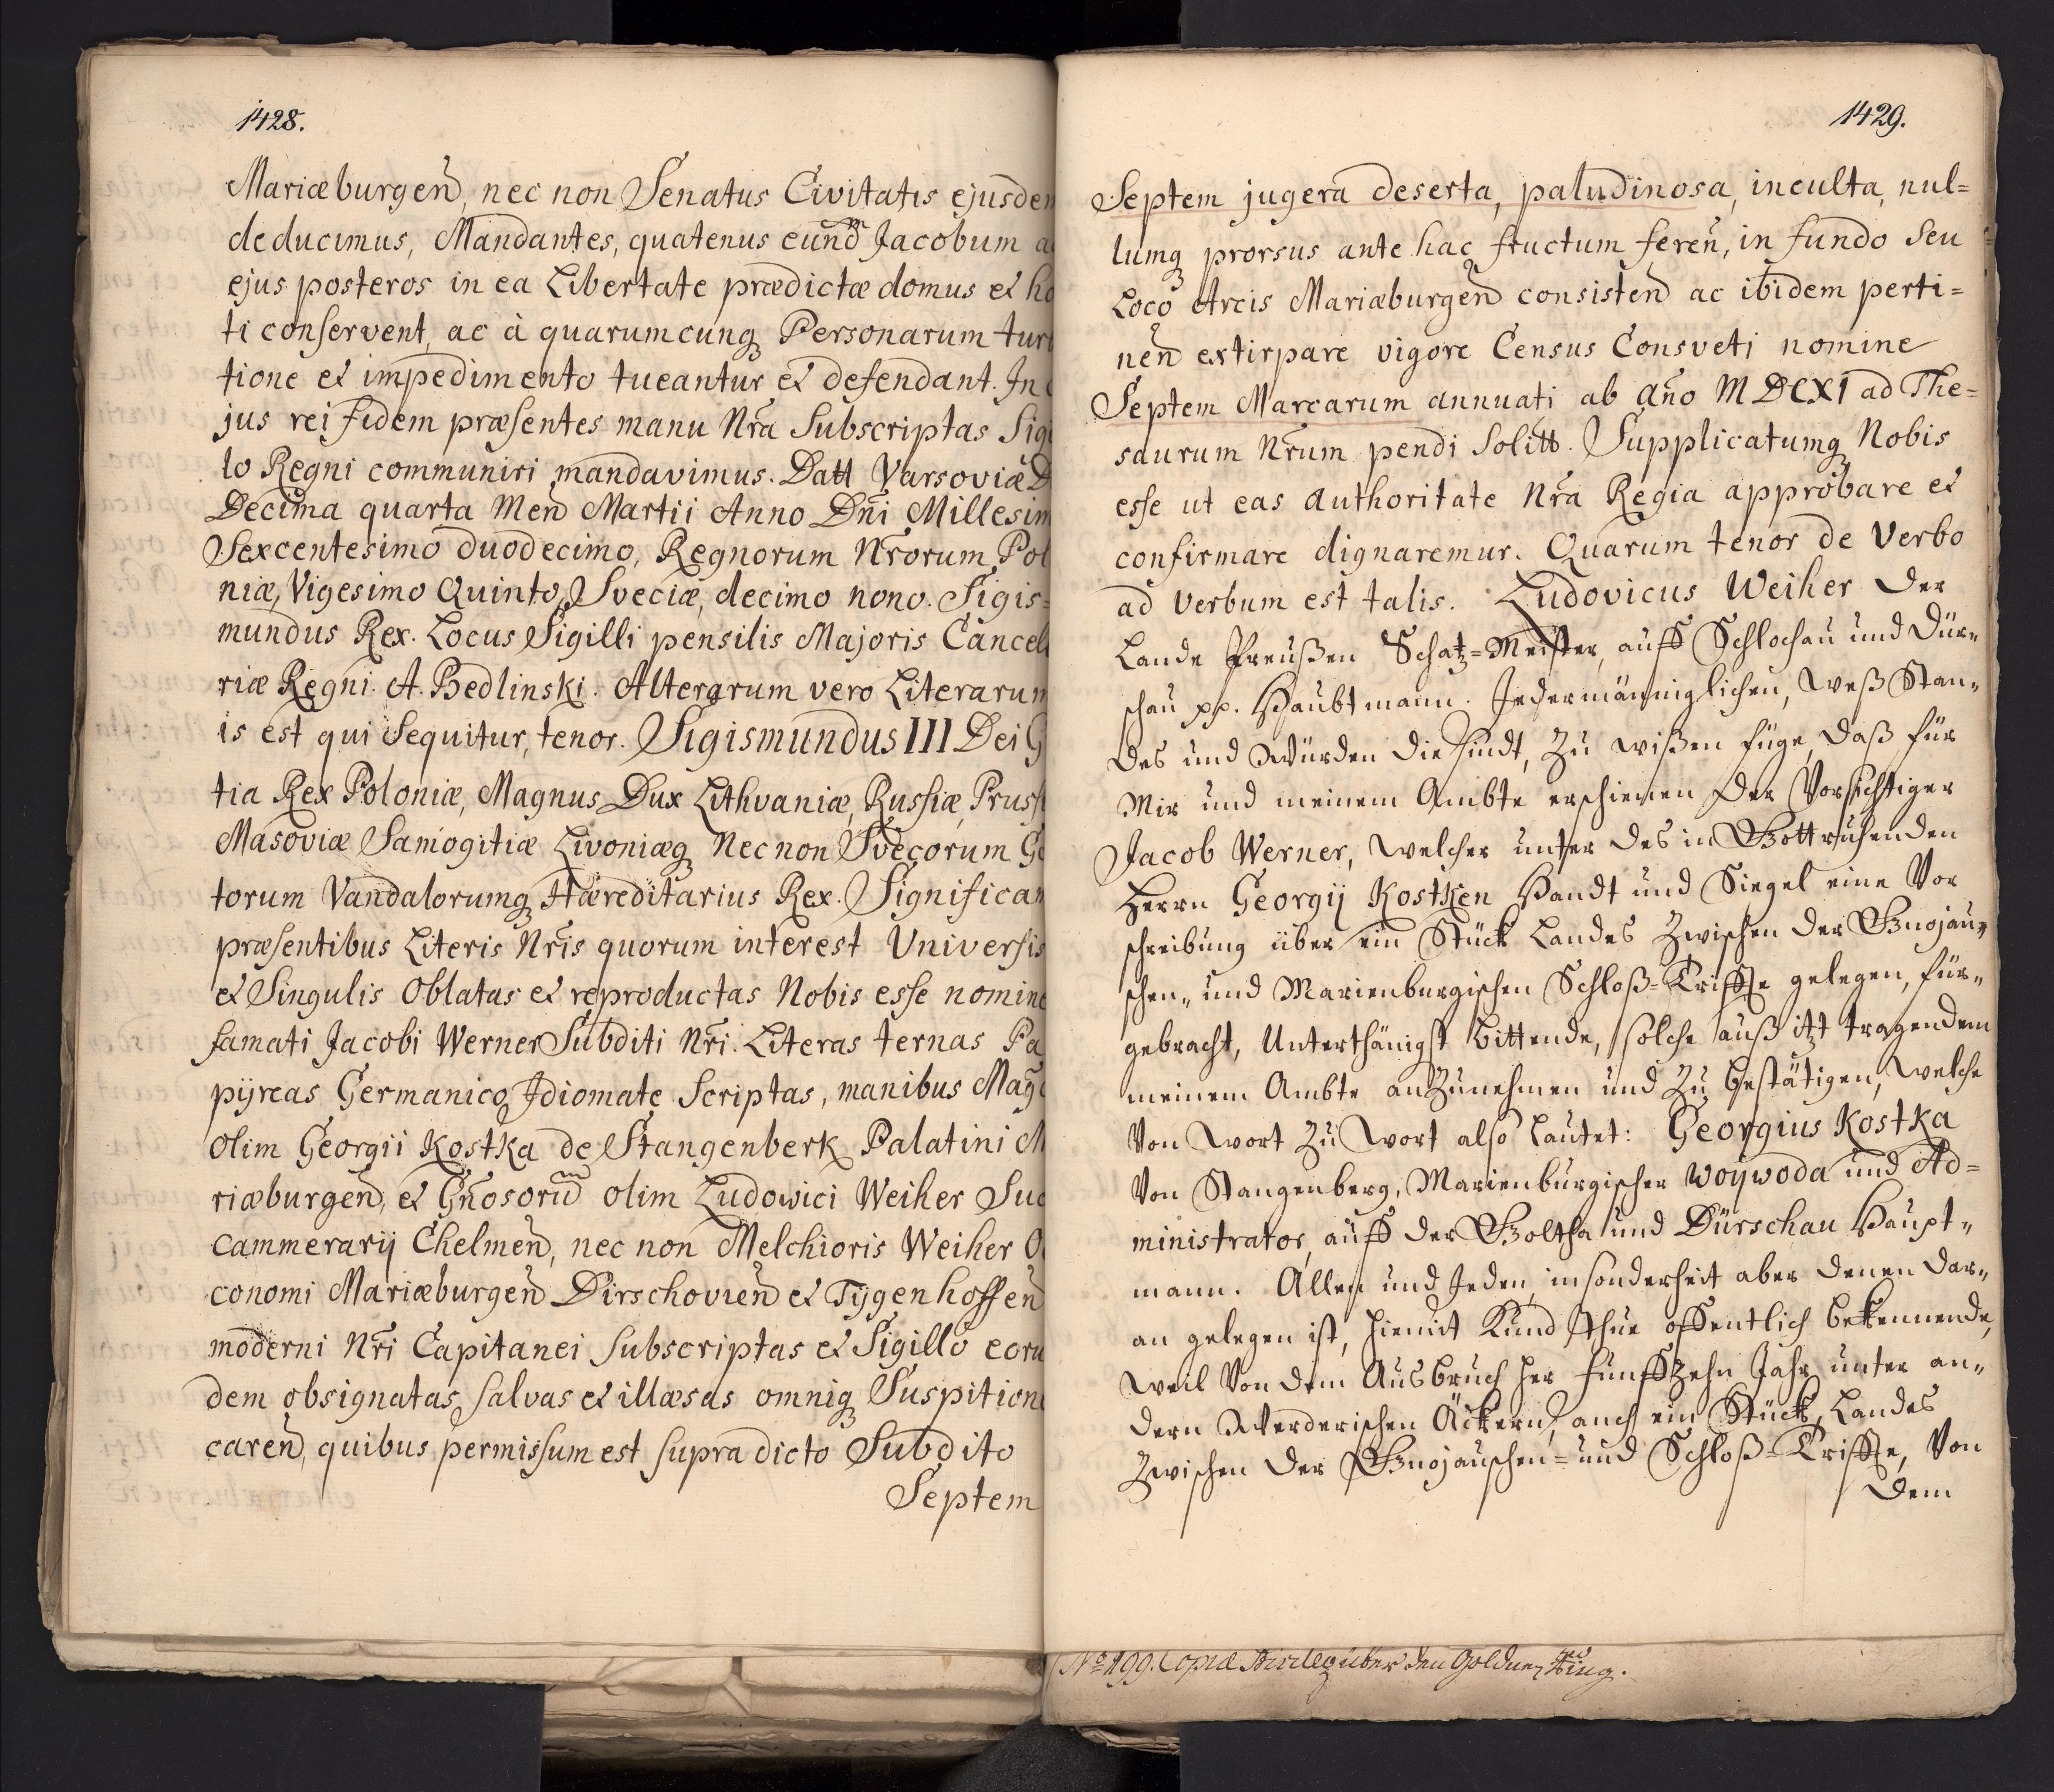 1428.
Mariæburgen̄, nec non Senatus Civitatis ejusdem
deducimus, Mandantes, quatenus eund̄ Jacobum a
ejus posteros in ea Libertate prædictæ domus et ho
ti conservent, ac à quarumcunq Personarum tur
tione et impedimento tueantur et defendant. In
jus rei fidem præsentes manu Nr̄a Subscriptas Sigi
lo Regni communiri mandavimus. Datt Varsoviæ D
Decima quarta Men̄ Martii Anno Dn̄i Millesim
Sexcentesimo duodecimo, Regnorum Nr̄orum Pol
niæ, Vigesimo Quinto, Sveciæ, decimo nono. Sigis=
mundus Rex. Locus Sigilli pensilis Majoris Cancel
riæ Regni. A. Bedlinski. Alterarum vero Literarum
is est qui Sequitur, tenor. Sigismundus III Dei G
tia Rex Poloniæ, Magnus Dux Lithvaniæ, Russiæ, Pruss
Masoviæ Samogitiæ Livoniæq Nec non Svecorum Go
torum Vandalorumq Hæreditarius Rex. Significam
præsentibus Literis Nr̄is quorum interest Universis
et Singulis Oblatas et reproductas Nobis esse nomine
famati Jacobi Werner Subditi Nr̄i. Literas ternas Pa
pÿreas Germanico Idiomate Scriptas, manibus Mag̅
olim Georgii Kostka de Stangenberk Palatini M
riæburgen̄, et Gn̄osorū olim Ludowici Weiher Suc
cammerarÿ Chelmen̄, nec non Melchioris Weiher O
conomi Mariæburgen̄ Dirschovien̄ et Tÿgenhoffen̄
moderni Nr̄i Capitanei Subscriptas et Sigillo coru
dem obsignatas, salvas et illæsas omniq Suspitione
caren̄, quibus permissum est supra dicto Subdito
Septem
1429.
Septem jugera deserta, paludinosa, inculta, nul=
lumq prorsus ante hac fructum feren̄, in fundo Seu
Loco Arcis Mariæburgen̄ consisten̄ ac ibidem perti=
nen̄ extirpare vigore Census Consveti nomine
Septem Marcarum annuati ab an̄o MDCXI ad The=
saurum Nr̄um pendi Solitt. Supplicatumq Nobis
esse ut eas authoritate Nr̄a Regia approbare et
confirmare dignaremur. Quarum tenor de Verbo
ad Verbum est talis. Ludovicus Weiher Der
Lande Preußen Schatz=Meister, auff Schlochau und Dür„
schau pp. Haubtmann. Jedermänniglichen, weß Stan„
des und Würden die sindt, Zu wißen füge, Daß für
Mir und meinem Ambte erschienen Der Vorsichtiger
Jacob Werner, welcher unter des in Gott ruhenden
Herrn Georgÿ Kostken Handt und Siegel eine Vor
schreibung über ein Stück Landes Zwischen der Gnojau„
schen„ und Marienburgischen Schloß=Triffte gelegen, für„
gebracht, Unterthänigst bittende, solche auß itzt tragendem
meinem Ambte anZunehmen und Zu bestätigen, welche
Von Wort Zu Wort also lautet: Georgius Kostka
Von Stangenberg, Marienburgischer Woÿwoda und Ad=
ministrator, auff der Goltha und Dürschau Haupt„
mann. Allen und Jeden, insonderheit aber denen dar„
an gelegen ist, hiemit Kund Thue öffentlich bekennende,
weil Von dem Ausbruch her funffzehn Jahr unter an„
dern Werderischen Äckern, auch ein Stück Landes
Zwischen der Gnojauschen= und Schloß=Triffte, Von
Dem
No 199. Copia Privileg über den Goldnen Ring.